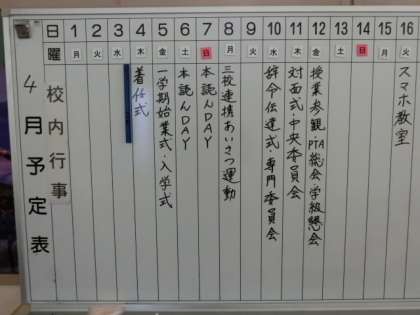 日 1 2 3 4 5 6 7 8 9 10 11 12 13 14 15 16
曜 月 火 水 木 金 土 日 月 火 水 木 金 土 日 月 火
4月予定表
校内行事
着任式
一学期始業式・入学式
本読んDAY
本読んDAY
三校連携あいさつ運動
辞令伝達式・専門委員会
対面式・中央委員会
授業参観・PTA総会・学級懇会
スマホ教室